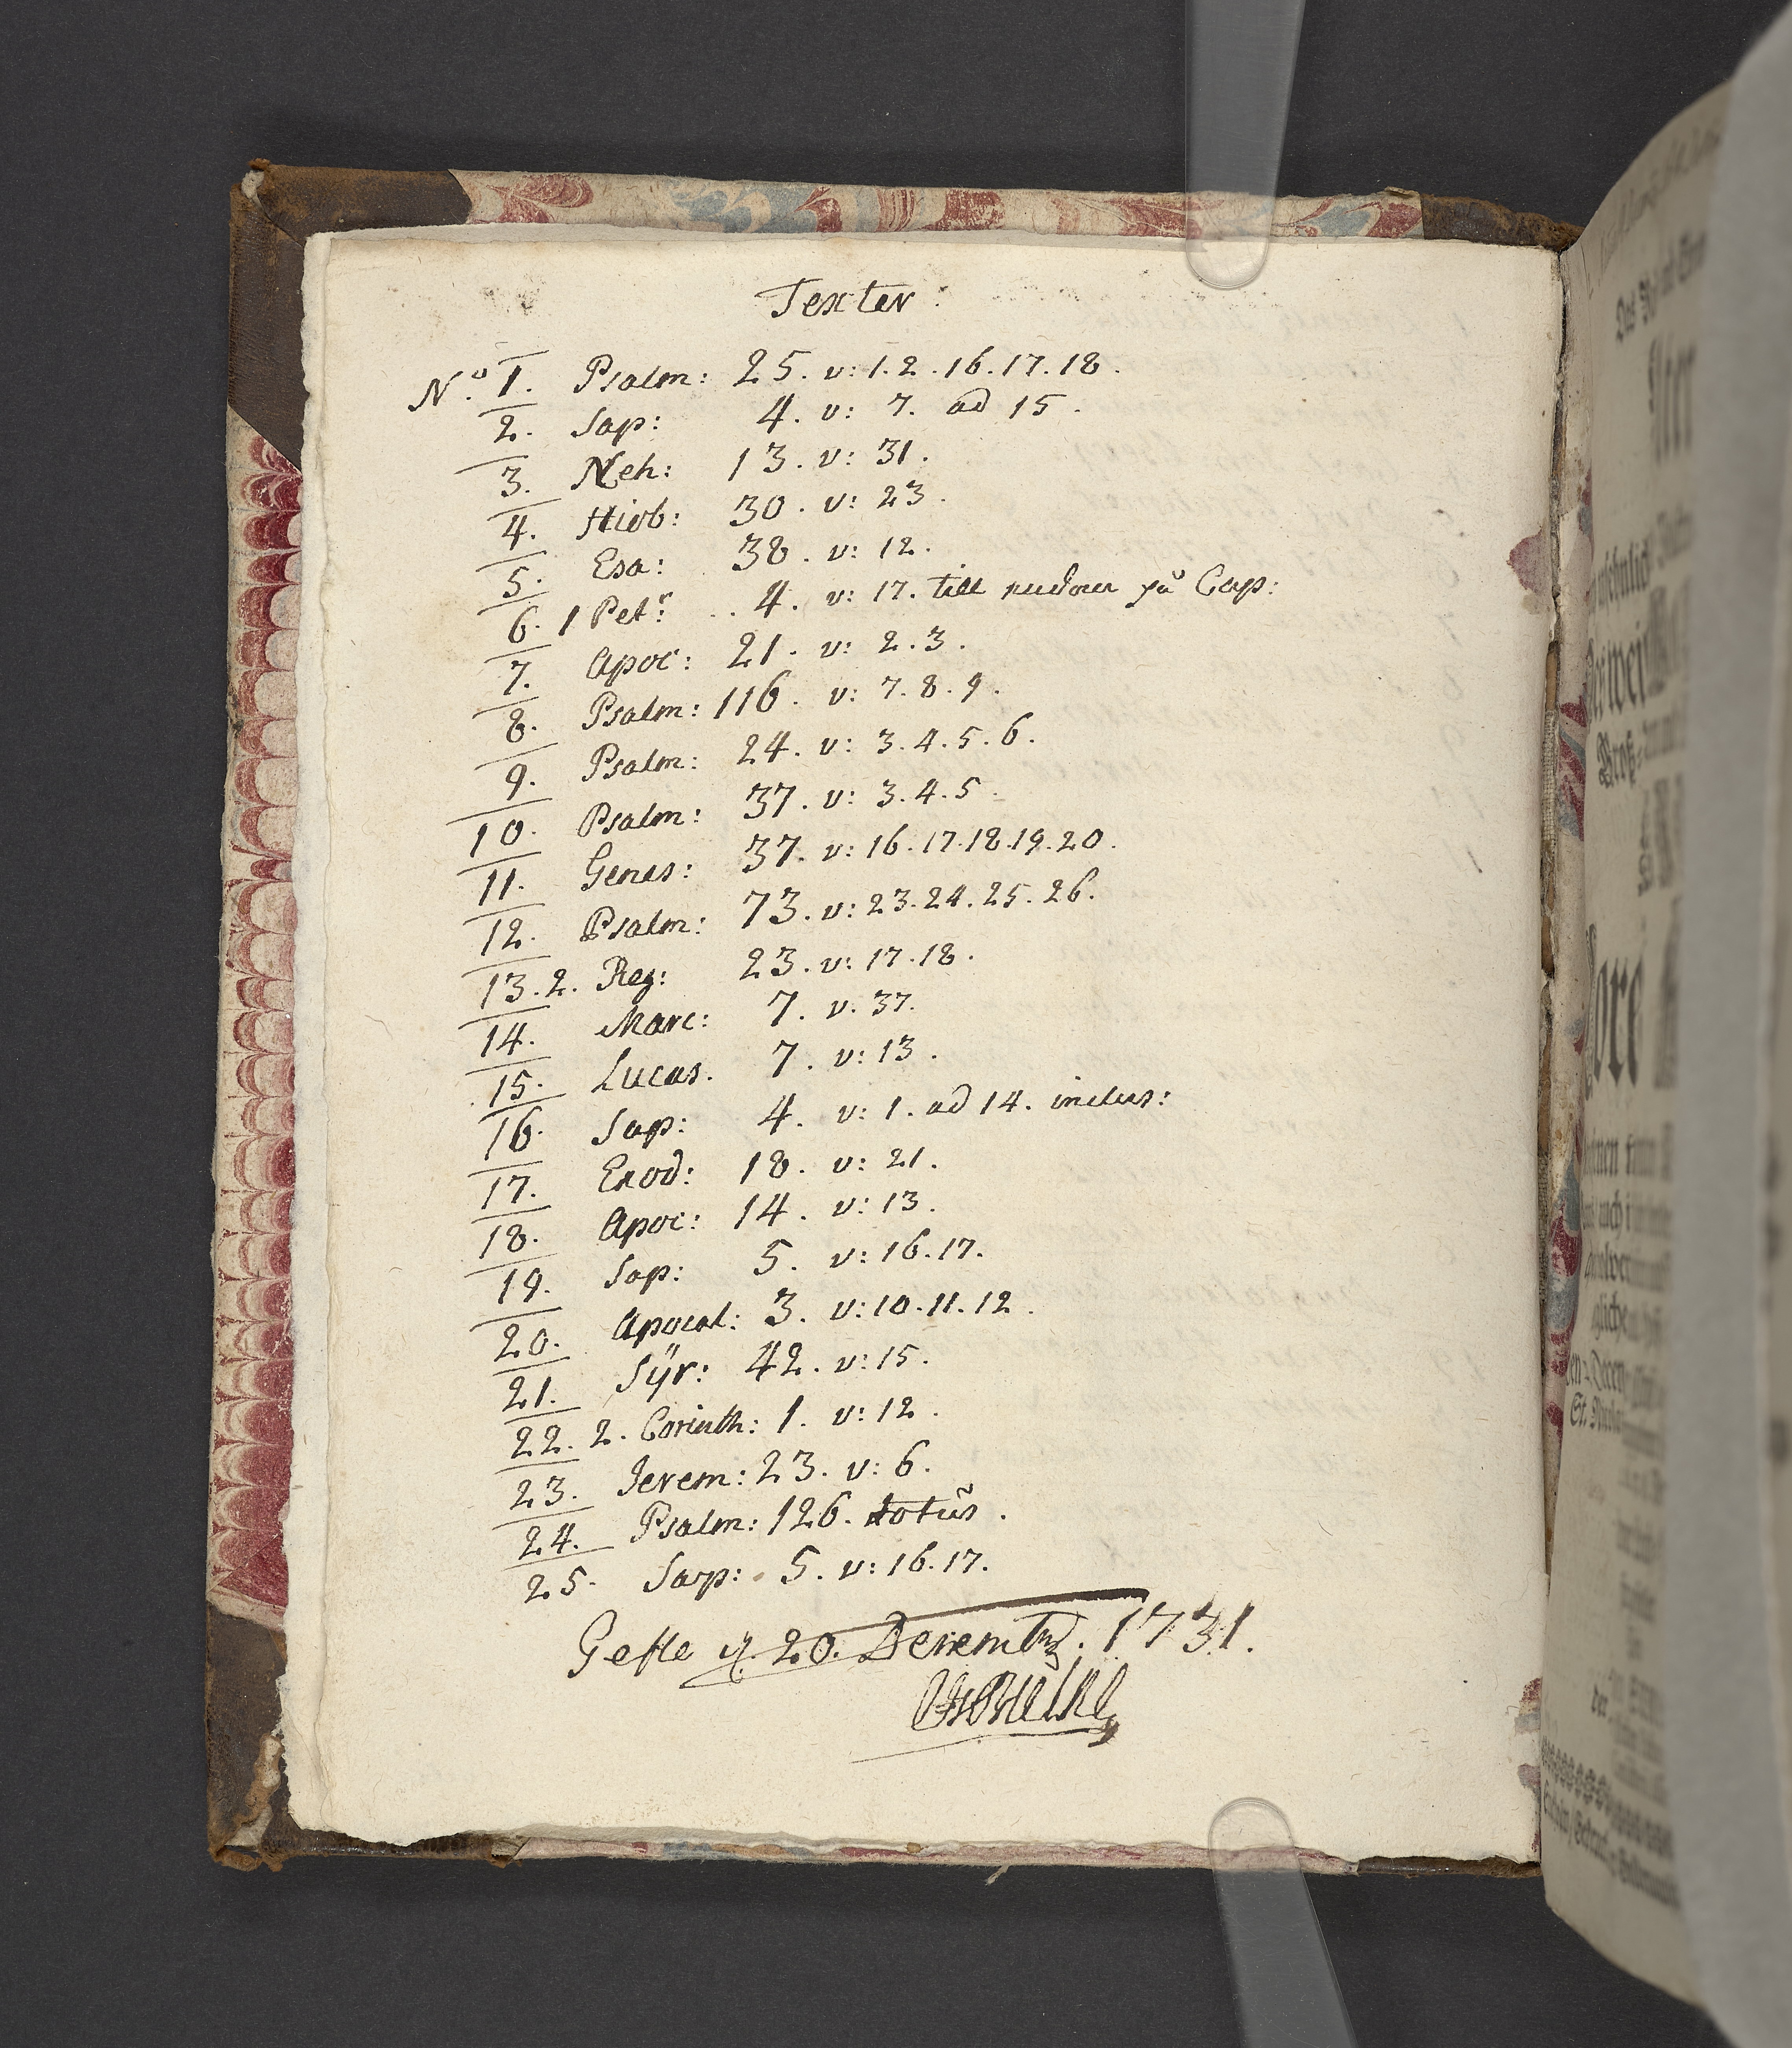 Texter:
N.o 1. Psalm: 25. v: 1. 2. 16. 17. 18.
2. Sap: 4. v: 7. ad 15.
3. Neh: 13. v: 31.
4. Hiob: 30. v: 23.
5. Esa: 38. v: 12.
6. 1 Petr: 4. v: 17. till på Cap:
7. Apoc: 21. v: 2. 3.
8. Psalm: 116. v: 7. 8. 9.
9. Psalm: 24. v: 3. 4. 5. 6.
10. Psalm: 37. v: 3. 4. 5.
11. Genes: 37. v: 16. 17. 18. 19. 20.
12. Psalm: 73. v: 23. 24. 25. 26.
13. 2. Reg: 23. v: 17. 18.
14. Marc: 7. v. 37.
15. Lucas. 7. v: 13.
16. Sap: 4. v: 1. ad 14. inclus:
17. Exod: 18. v: 21.
18. Apoc: 14. v: 13.
19. Sap: 5. v: 16. 17.
20. Apocal: 3. v: 10. 11. 12.
21. Sÿr: 42. v: 15.
22. 2. Corinth: 1. v: 12.
23. Jerem: 23. v: 6.
24. Psalm: 126. totus.
25. Sap: 5. v: 16. 17.
Gefle d. 20. Decemb. 1731.